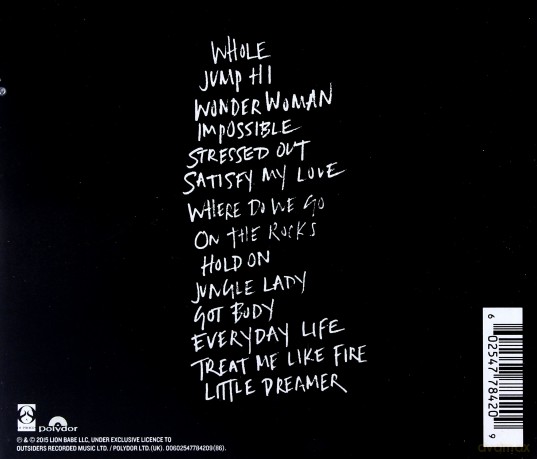 WHOLE
JUMP HI
WONDER WOMAN
IMPOSSIBLE
STRESSED OUT
SATISFY MY LOVE
WHERE DO WE GO
ON THE ROCKS
HOLD ON
JUNGLE LADY
GOT BODY
EVERYDAY LIFE
TREAT ME LIKE FIRE
LITTLE DREAMER
6 02547 78420 9
polydor
℗ & © 2015 LION BABE LLC, UNDER EXCLUSIVE LICENCE TO
OUTSIDERS RECORDED MUSIC LTD. / POLYDOR LTD. (UK). 00602547784209 (86).